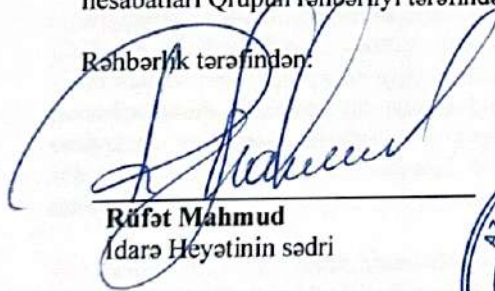 hesabatları Qrupun rəhbərliyi tərəfində
Rəhbərlik tərəfindən:
Rüfət Mahmud
İdarə Heyətinin sədri